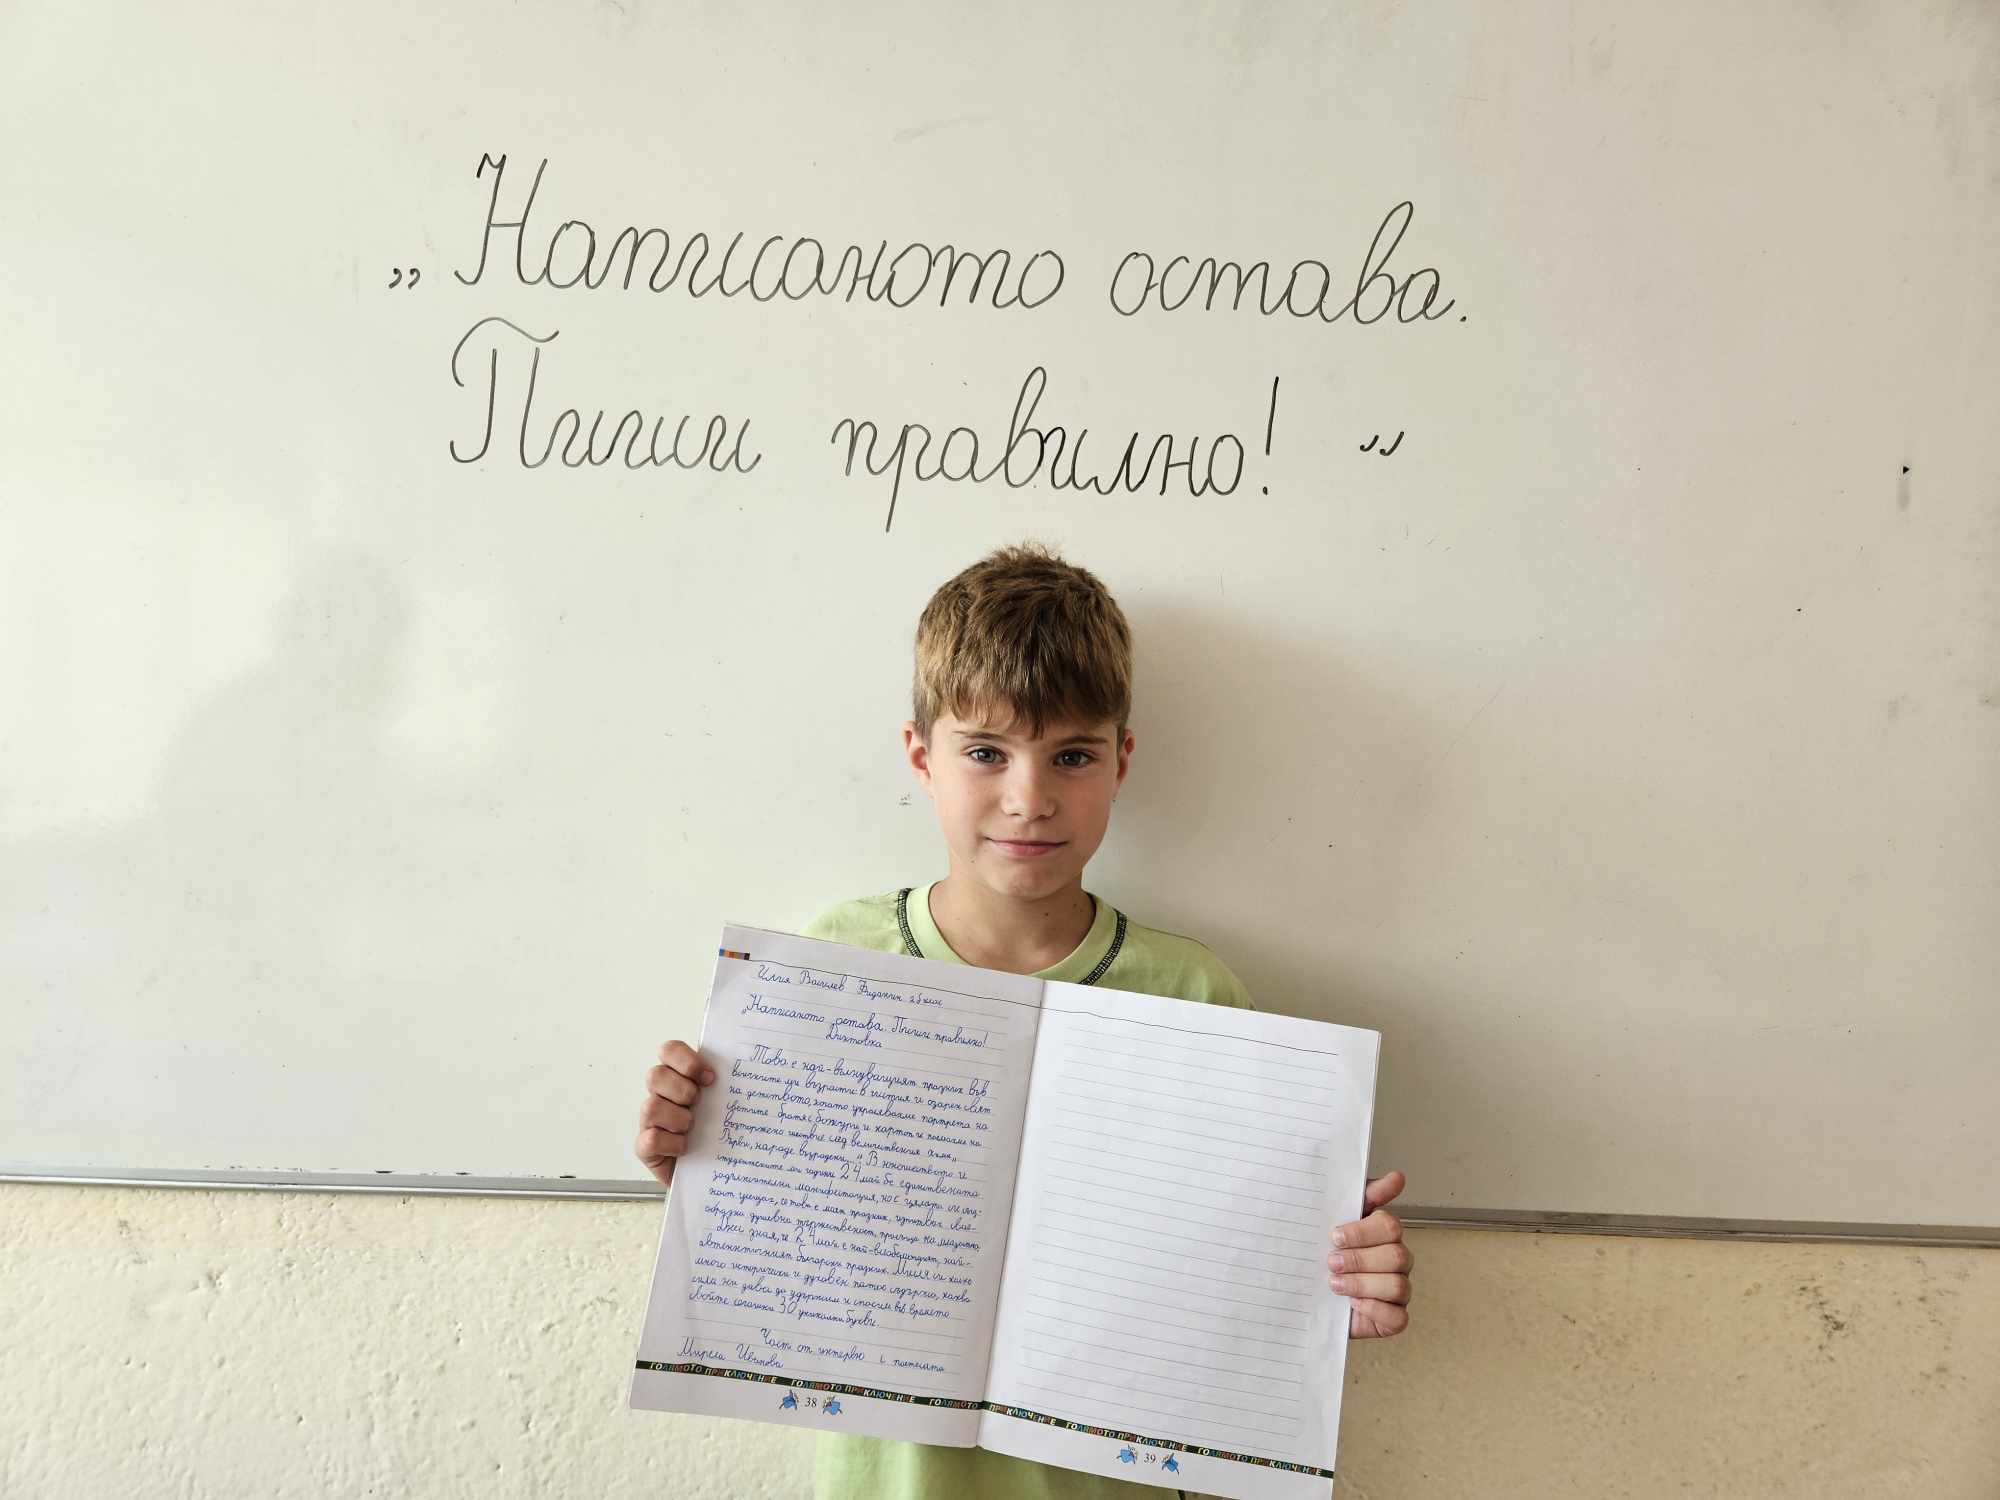 „Написаното остава.
Пиши правилно!“
Илия Василев Фиданкин 2 б клас
„Написаното остава. Пиши правилно!
Диктовка
Това е най-вълнуващият празник във
всичките ми възрасти: в чистия и озарен свят
на детството, когато украсявахме портрета на
светите братя с божури и картон и поемахме на
възторжено шествие след величествения химн „
Върви, народе възродени...“ В юношеството и
студентските ми години 24 май бе единствената
задължителна манифестация, но с цялата си същ-
ност усещах, че това е моят празник, изпитвах своя-
образна душевна тържественост, празници на младостта
Днес зная, че 24 май е най-всеобемащият, най-
автентичният български празник. Мисля си какво
много исторически и духовен патос съдържа, каква
сила ни дава да удържим и спасим във времето
своите сегашни 30 уникални букви.
Част от интервю с поетесата
Мирела Иванова
ГОЛЯМОТО ПРИКЛЮЧЕНИЕ ГОЛЯМОТО ПРИКЛЮЧЕНИЕ ГОЛЯМОТО ПРИКЛЮЧЕНИЕ ГОЛЯМОТО ПРИКЛЮЧЕНИЕ ГОЛЯМОТО ПРИКЛЮЧЕНИЕ
38
39